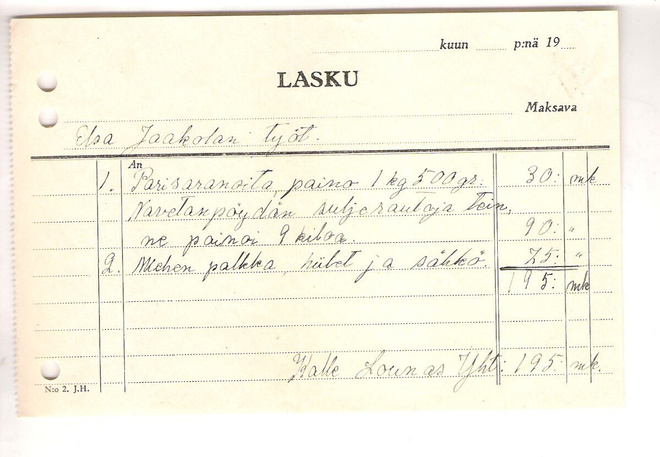 kuun p:nä 19
LASKU
Maksava
Elsa Jaakolan työt.
An
1. Parisaranoita, paino 1 kg 500 gr. 30: mk
Navetanpöydän suljerautoja tein,
ne painoi 9 kiloa. 90: "
2. Miehen palkka, hiilet ja sähkö. 75: "
195: mk
Kalle Lounas Yht: 195: mk.
N:o 2. J.H.